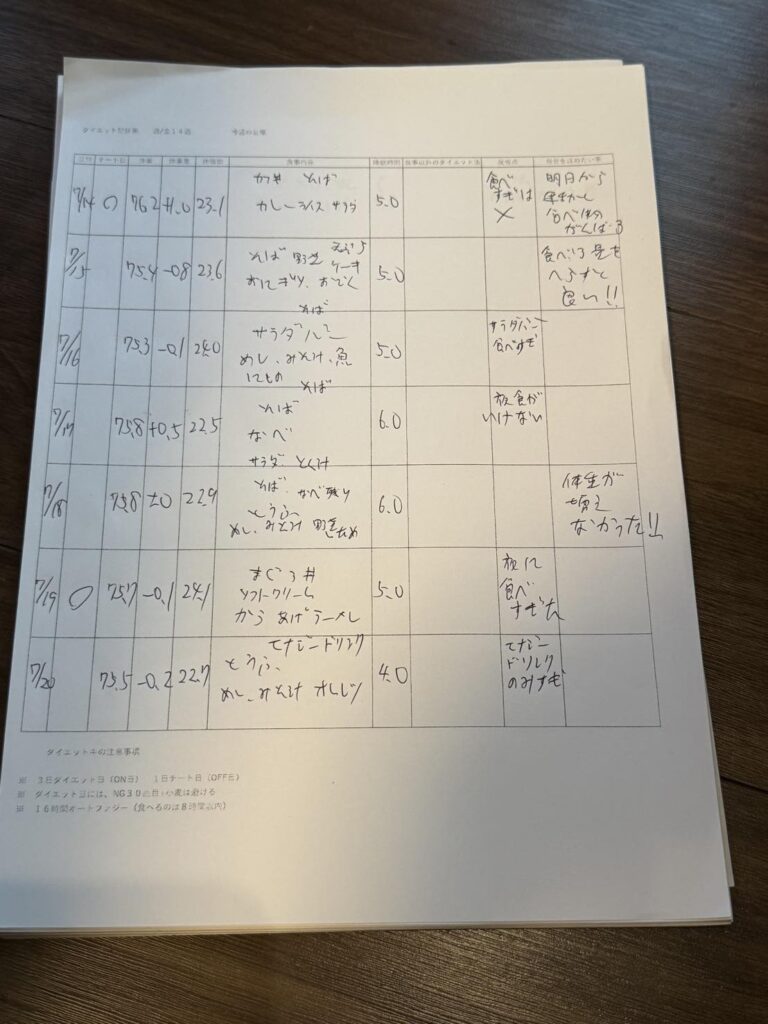 ダイエット記録表 週/全14週 今週の目標
日付 チート日 体重 体重差 体脂肪 食事内容 睡眠時間 食事以外のダイエット法 反省点 自分をほめたい事
7/14 ○ 76.2 +1.0 23.1 そば 5.0 食べすぎは ×
カレーライス サラダ
明日から
がんばる
7/15 75.4 -0.8 23.6 そば 野菜 天ぷら 5.0
ケーキ
おにぎり、おでん
食べる量を
へらすと
良い!!
7/16 75.3 -0.1 24.0 そば 5.0
サラダバー
めし、みそ汁、魚
にもの
サラダバー
食べすぎ
7/17 75.8 +0.5 22.5 そば 6.0
そば
なべ
夜食が
いけない
7/18 75.8 ±0 22.9 サラダ 6.0
そば なべ残り
とうふ
めし、みそ汁 野菜
体重が
増え
なかった!!
7/19 ○ 75.7 -0.1 24.1 まぐろ丼 5.0
ソフトクリーム
からあげラーメン
夜に
食べ
すぎた
7/20 75.5 -0.2 22.7 エナジードリンク 4.0
とうふ、
めし、みそ汁
エナジー
ドリンク
のみすぎ
ダイエット中の注意事項
※ 3日ダイエット日(ON日) 1日チート日(OFF日)
※ ダイエット日には、NG30品目+小麦は避ける
※ 16時間オートファジー(食べるのは8時間以内)